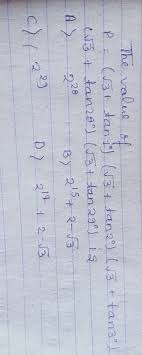 The value of
P = (√3 + tan1°) (√3 + tan2°) (√3 + tan3°)
(√3 + tan28°) (√3 + tan29°) is
A) 2^28 B) 2^15 + 2-√3
C) 2^29 D) 2^14 + 2-√3